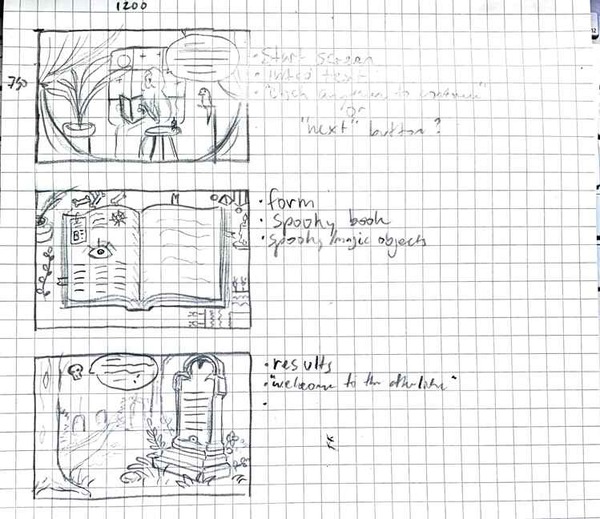 1200
750
• Start screen
• limited text
• "Click anywhere to continue"
or
"next" button?
• form
• spooky book
• spooky/magic objects
• results
• "welcome to the afterlife"